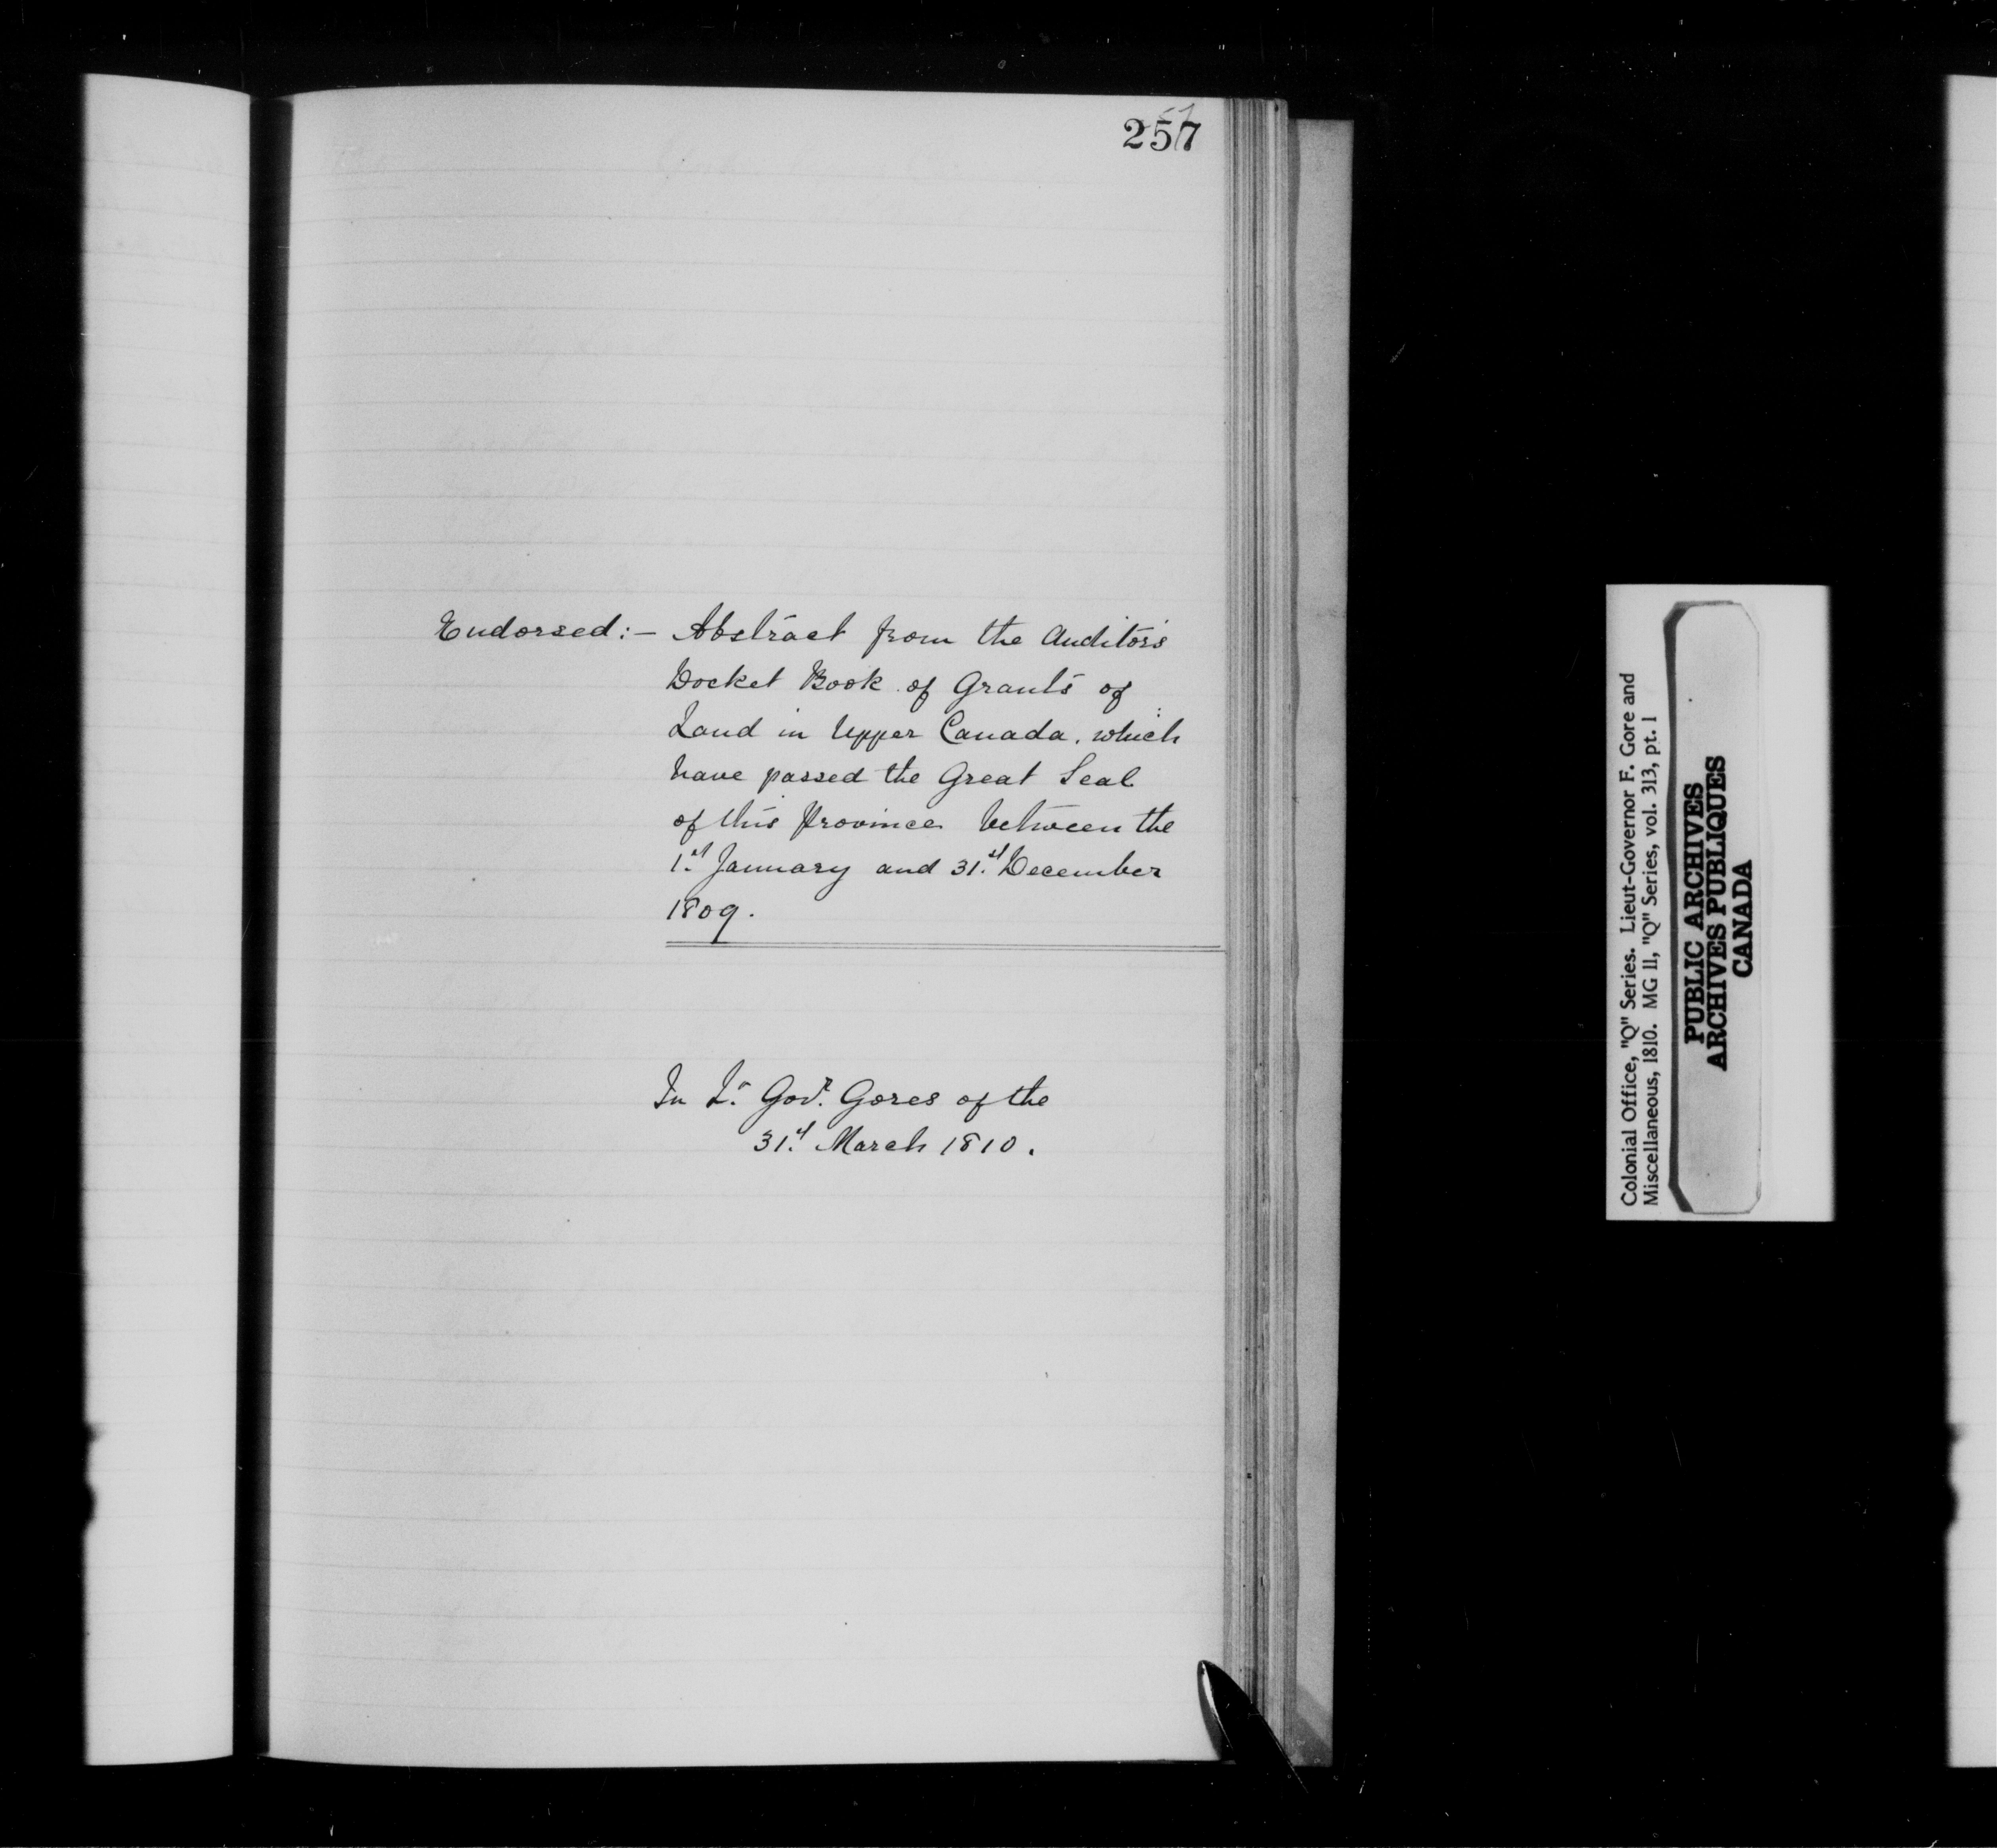 257
Endorsed:- Abstract from the Auditor's
Docket Book of Grants of
Land in Upper Canada, which
have passed the Great Seal
of this Province between the
1st January and 31st December
1809.
In Lt Govr Gores of the
31st March 1810.
Colonial Office, "Q" Series. Lieut-Governor F. Gore and
Miscellaneous, 1810. MG 11, "Q" Series, vol. 313, pt. 1
PUBLIC ARCHIVES
ARCHIVES PUBLIQUES
CANADA